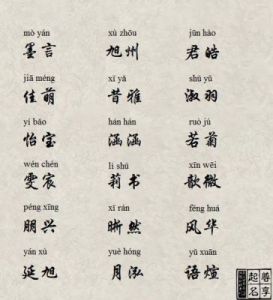 mò yán xù zhōu jūn hào
墨言 旭州 君皓
jiā méng xī yǎ shū yǔ
佳萌 昔雅 淑羽
yí bǎo hán hán ruò jú
怡宝 涵涵 若菊
wén chén lì shū xīn wēi
雯宸 莉书 歆微
péng xīng xī rán fēng huá
朋兴 晰然 风华
yán xù yuè hóng yǔ xuān
延旭 月泓 语煊
尊享
起名